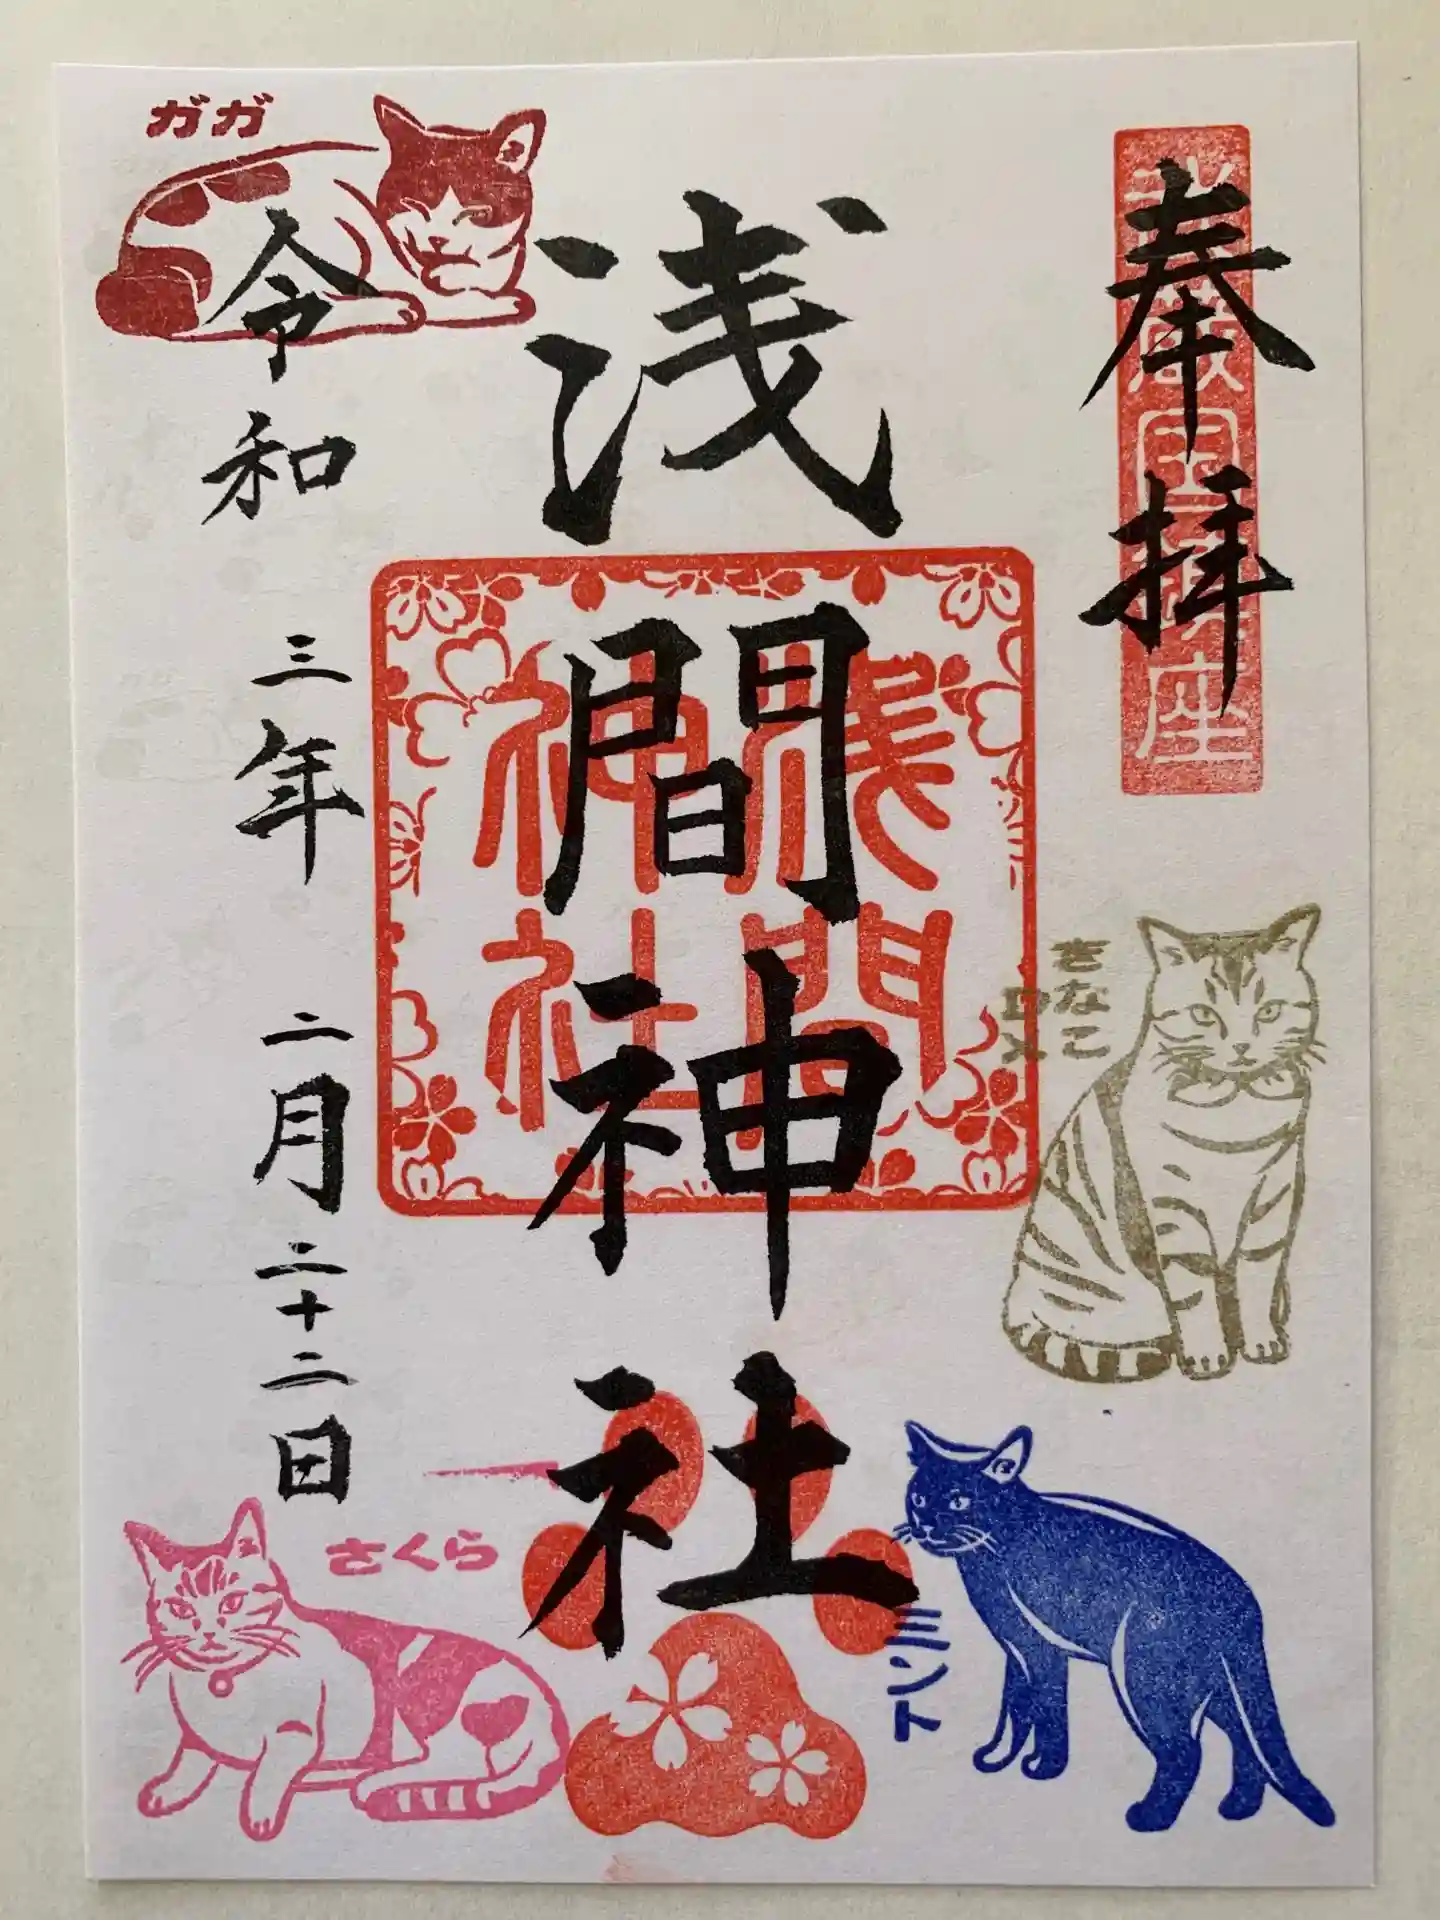 奉拝
きなこ
DX
ミント
浅間神社
浅間
神社
ガガ
令和三年二月二十二日
さくら